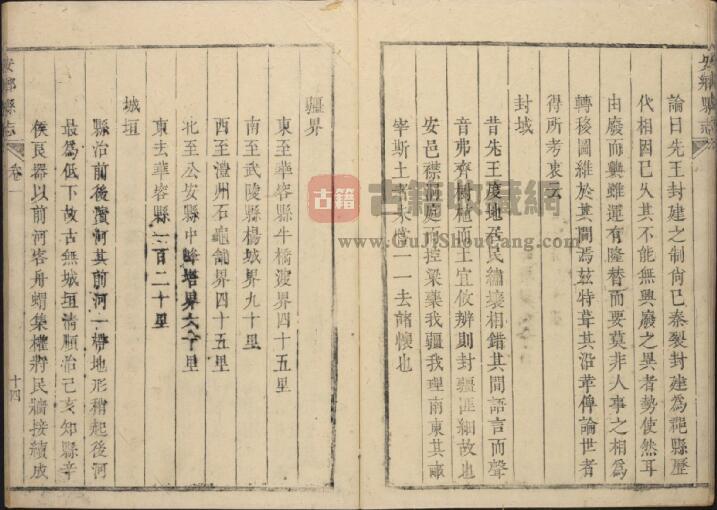 論曰先王封建之制尚已秦裂封建為郡縣歷
代相因已久其不能無興廢之異者勢使然耳
由廢而興雖運有隆替而要莫非人事之相為
轉移圖維於其間焉茲特葺其沿革俾論世者
得所考衷云
封域
昔先王度地居民繡壤相錯其間語言而聲
音弗齊樹植而土宜攸辨則封疆匪細故也
安邑襟洞庭而控梁棗我疆我理南東其畝
宰斯土者未嘗一一去諸懷也
疆界
東至華容縣牛橋渡界四十五里
南至武陵縣楊城界九十里
西至澧州石龜界四十五里
北至公安縣中界六十里
東去華容縣一百二十里
城垣
縣治前後濱河其前河一帶地形稍起後河
最為低下故古無城垣清順治己亥知縣辛
侯良器以前河客舟蝟集權將民牆接續成
安鄉縣志
卷一
十四
安鄉縣志
古籍
古籍收藏網
www.GuJiShouCang.com